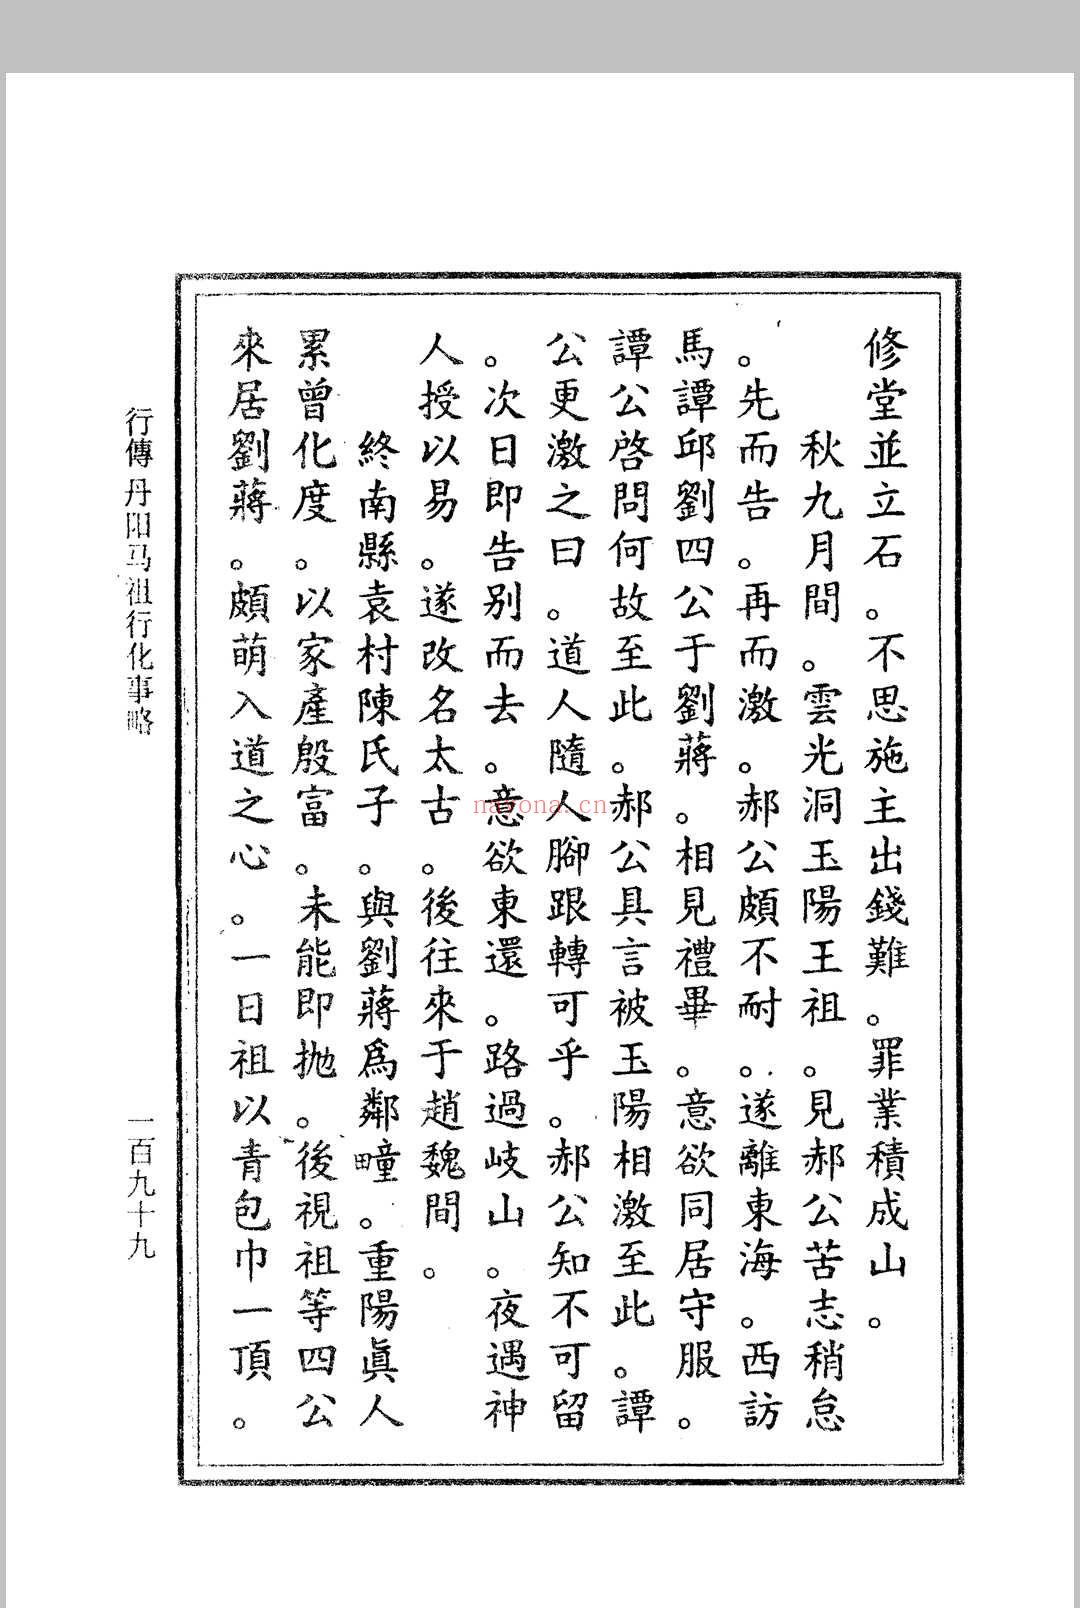 修堂並立石。不思施主出錢難。罪業積成山。
秋九月間。雲光洞玉陽王祖。見郝公苦志稍怠
。先而告。再而激。郝公頗不耐。遂離東海。西訪
馬譚邱劉四公于劉蔣。相見禮畢。意欲同居守服。
譚公啓問何故至此。郝公具言被玉陽相激至此。譚
公更激之曰。道人隨人腳跟轉可乎。郝公知不可留
。次日即告别而去。意欲東還。路過岐山。夜遇神
人授以易。遂改名太古。後往來于趙魏間。
終南縣袁村陳氏子。與劉蔣爲鄰疃。重陽眞人
累曾化度。以家產殷富。未能即抛。後視祖等四公
來居劉蔣。頗萌入道之心。一日祖以青包巾一頂。
行傳 丹阳马祖行化事略
一百九十九
nayona.cn